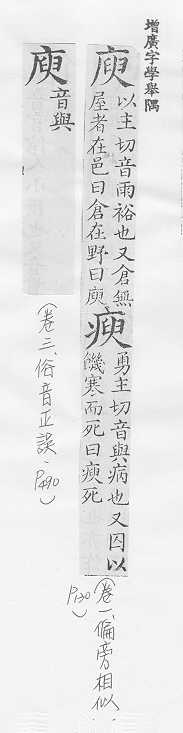 增廣字學舉隅
庾以主切音雨裕也又倉無
屋者在邑曰倉在野曰庾
瘐勇主切音與病也又囚以
饑寒而死曰瘐死
(卷一、偏旁相似、
P130)
庾音與
(卷三、俗音正誤、
P490)